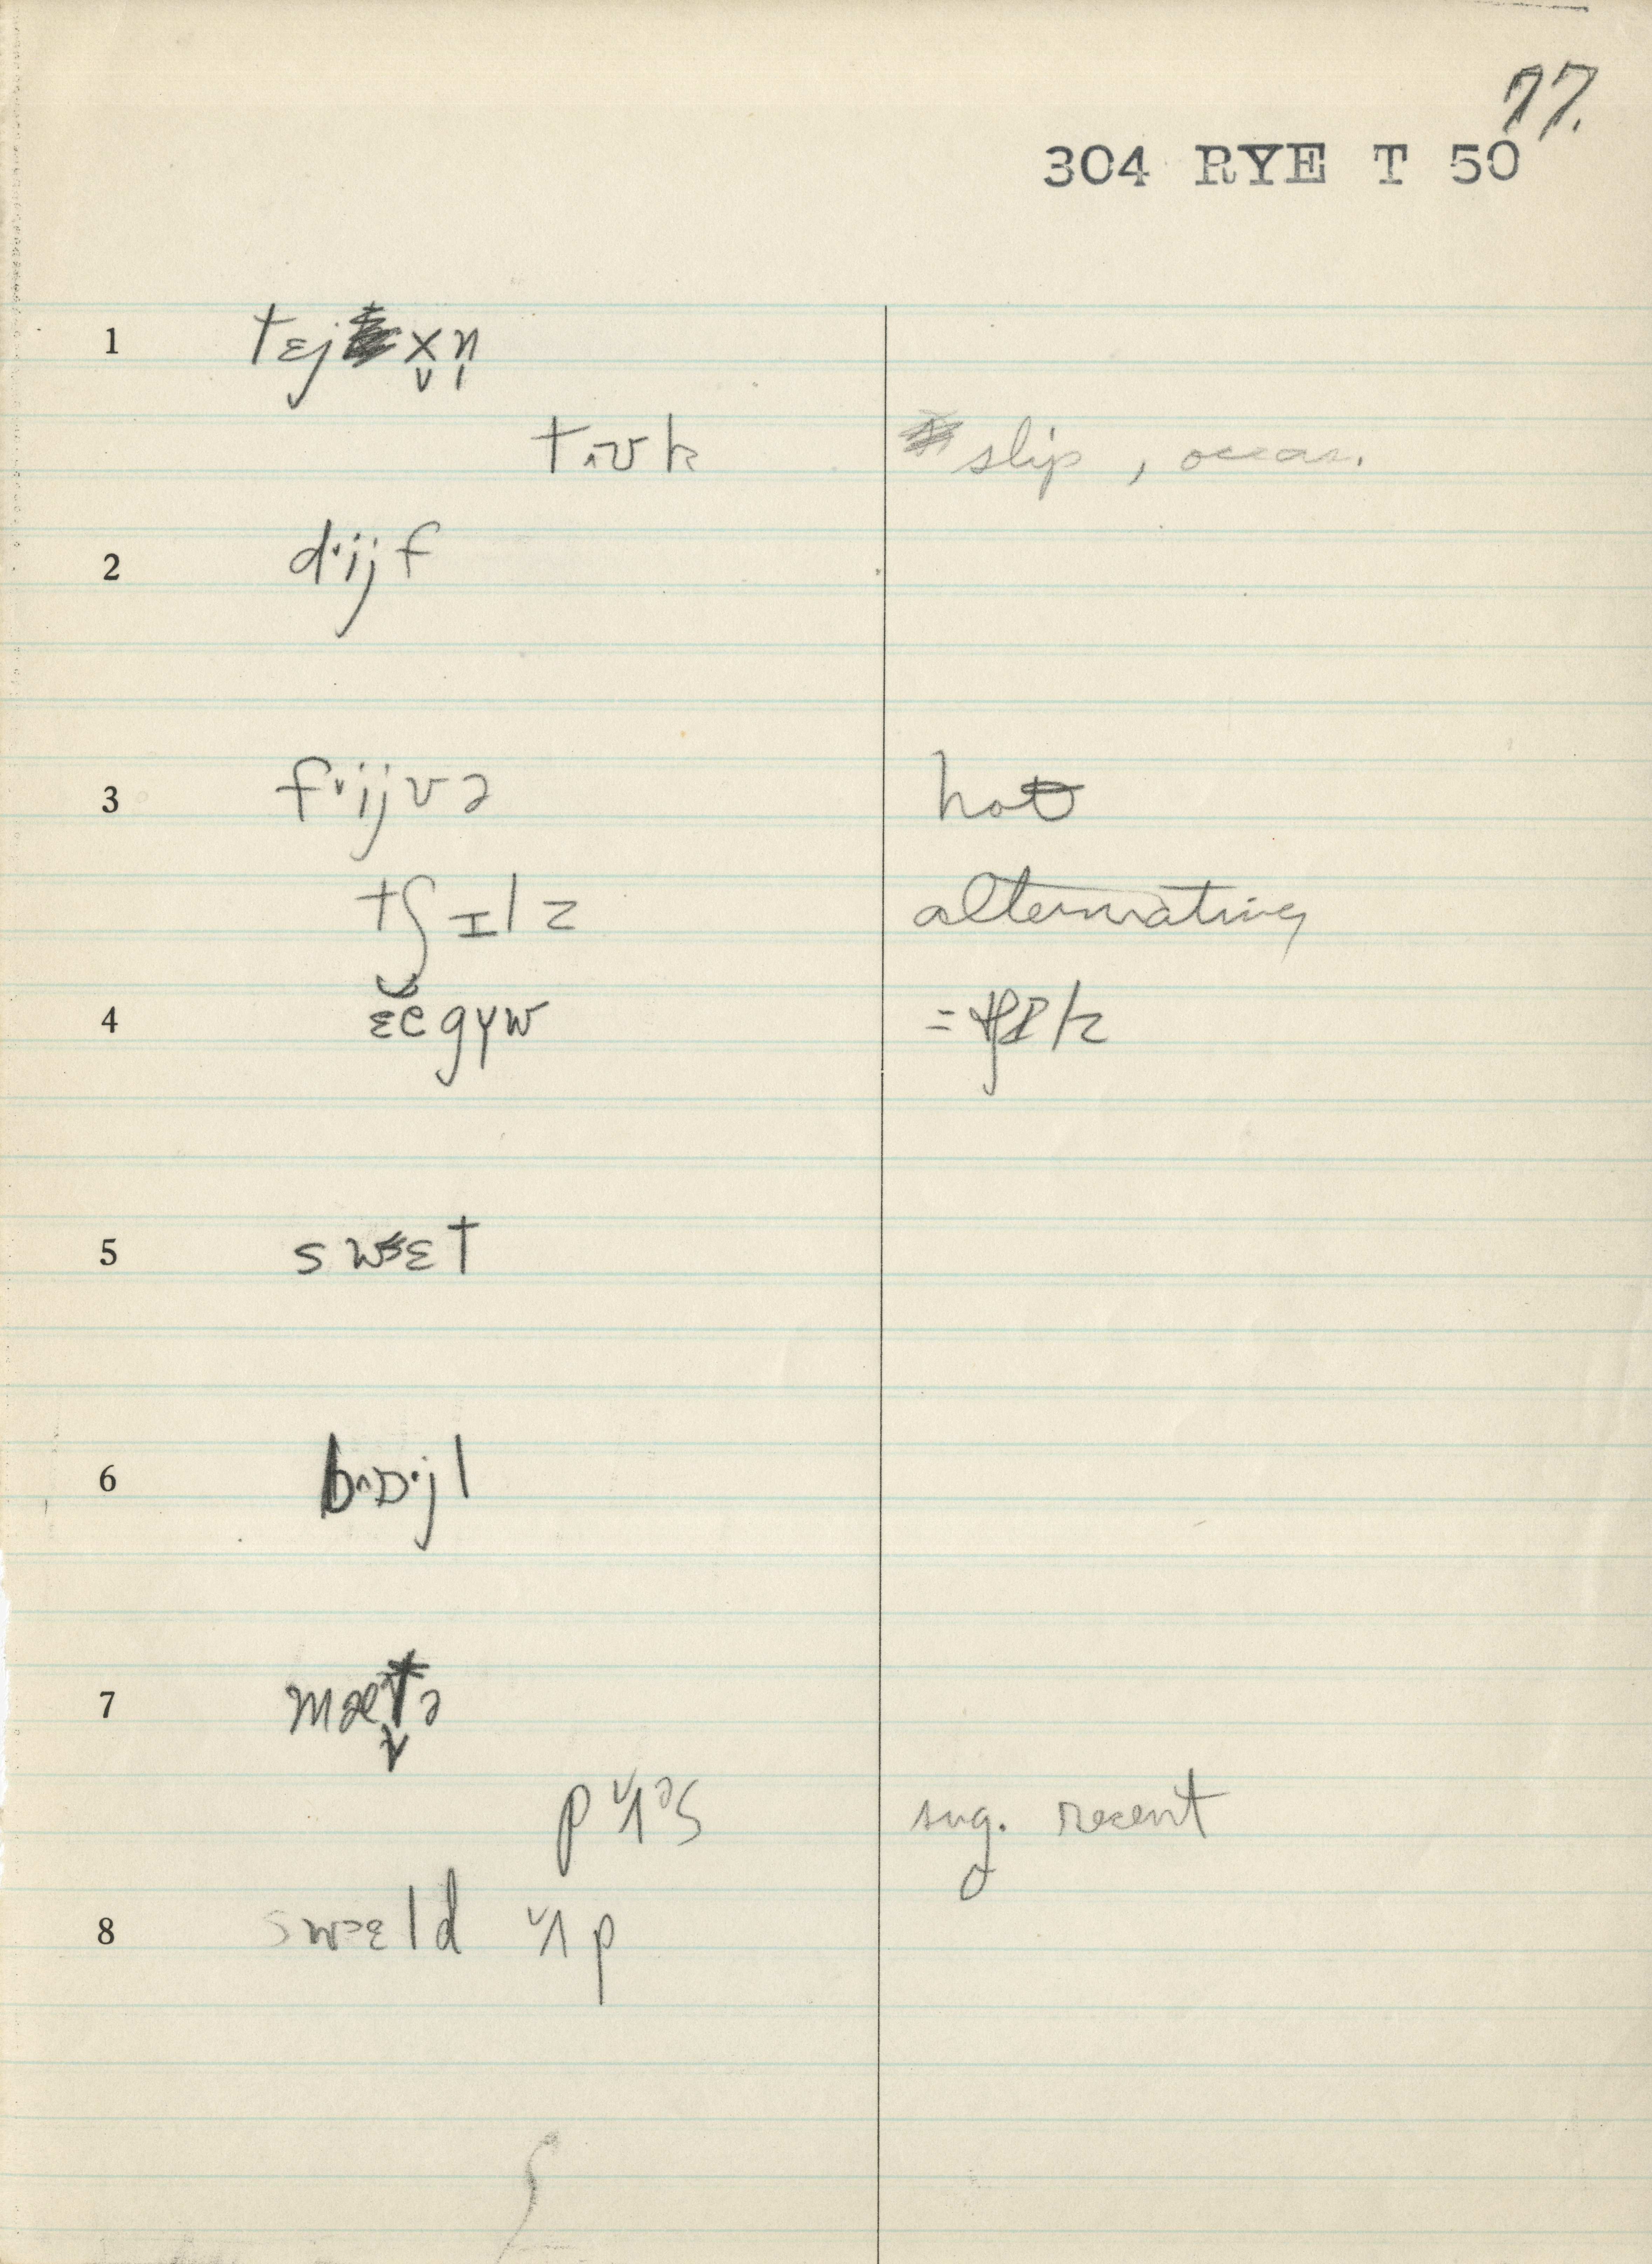 77.
304 RYE T 50
1 tɛjx̬n̩
t˄ʊk slip, occas.
2 d˅ijf
3 f˅ijvə hot
tʃɪlz alternating
4 ɛ̆ĕgɣw
5 swɛt
6 b˄ɒ·jl
7 mæt̬ə
p˅ɜᵊs sug. recent
8 swɛld ˅ʌp